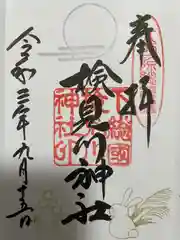 奉拝
下総国
検見川
神社印
検見川神社
令和三年九月十五日